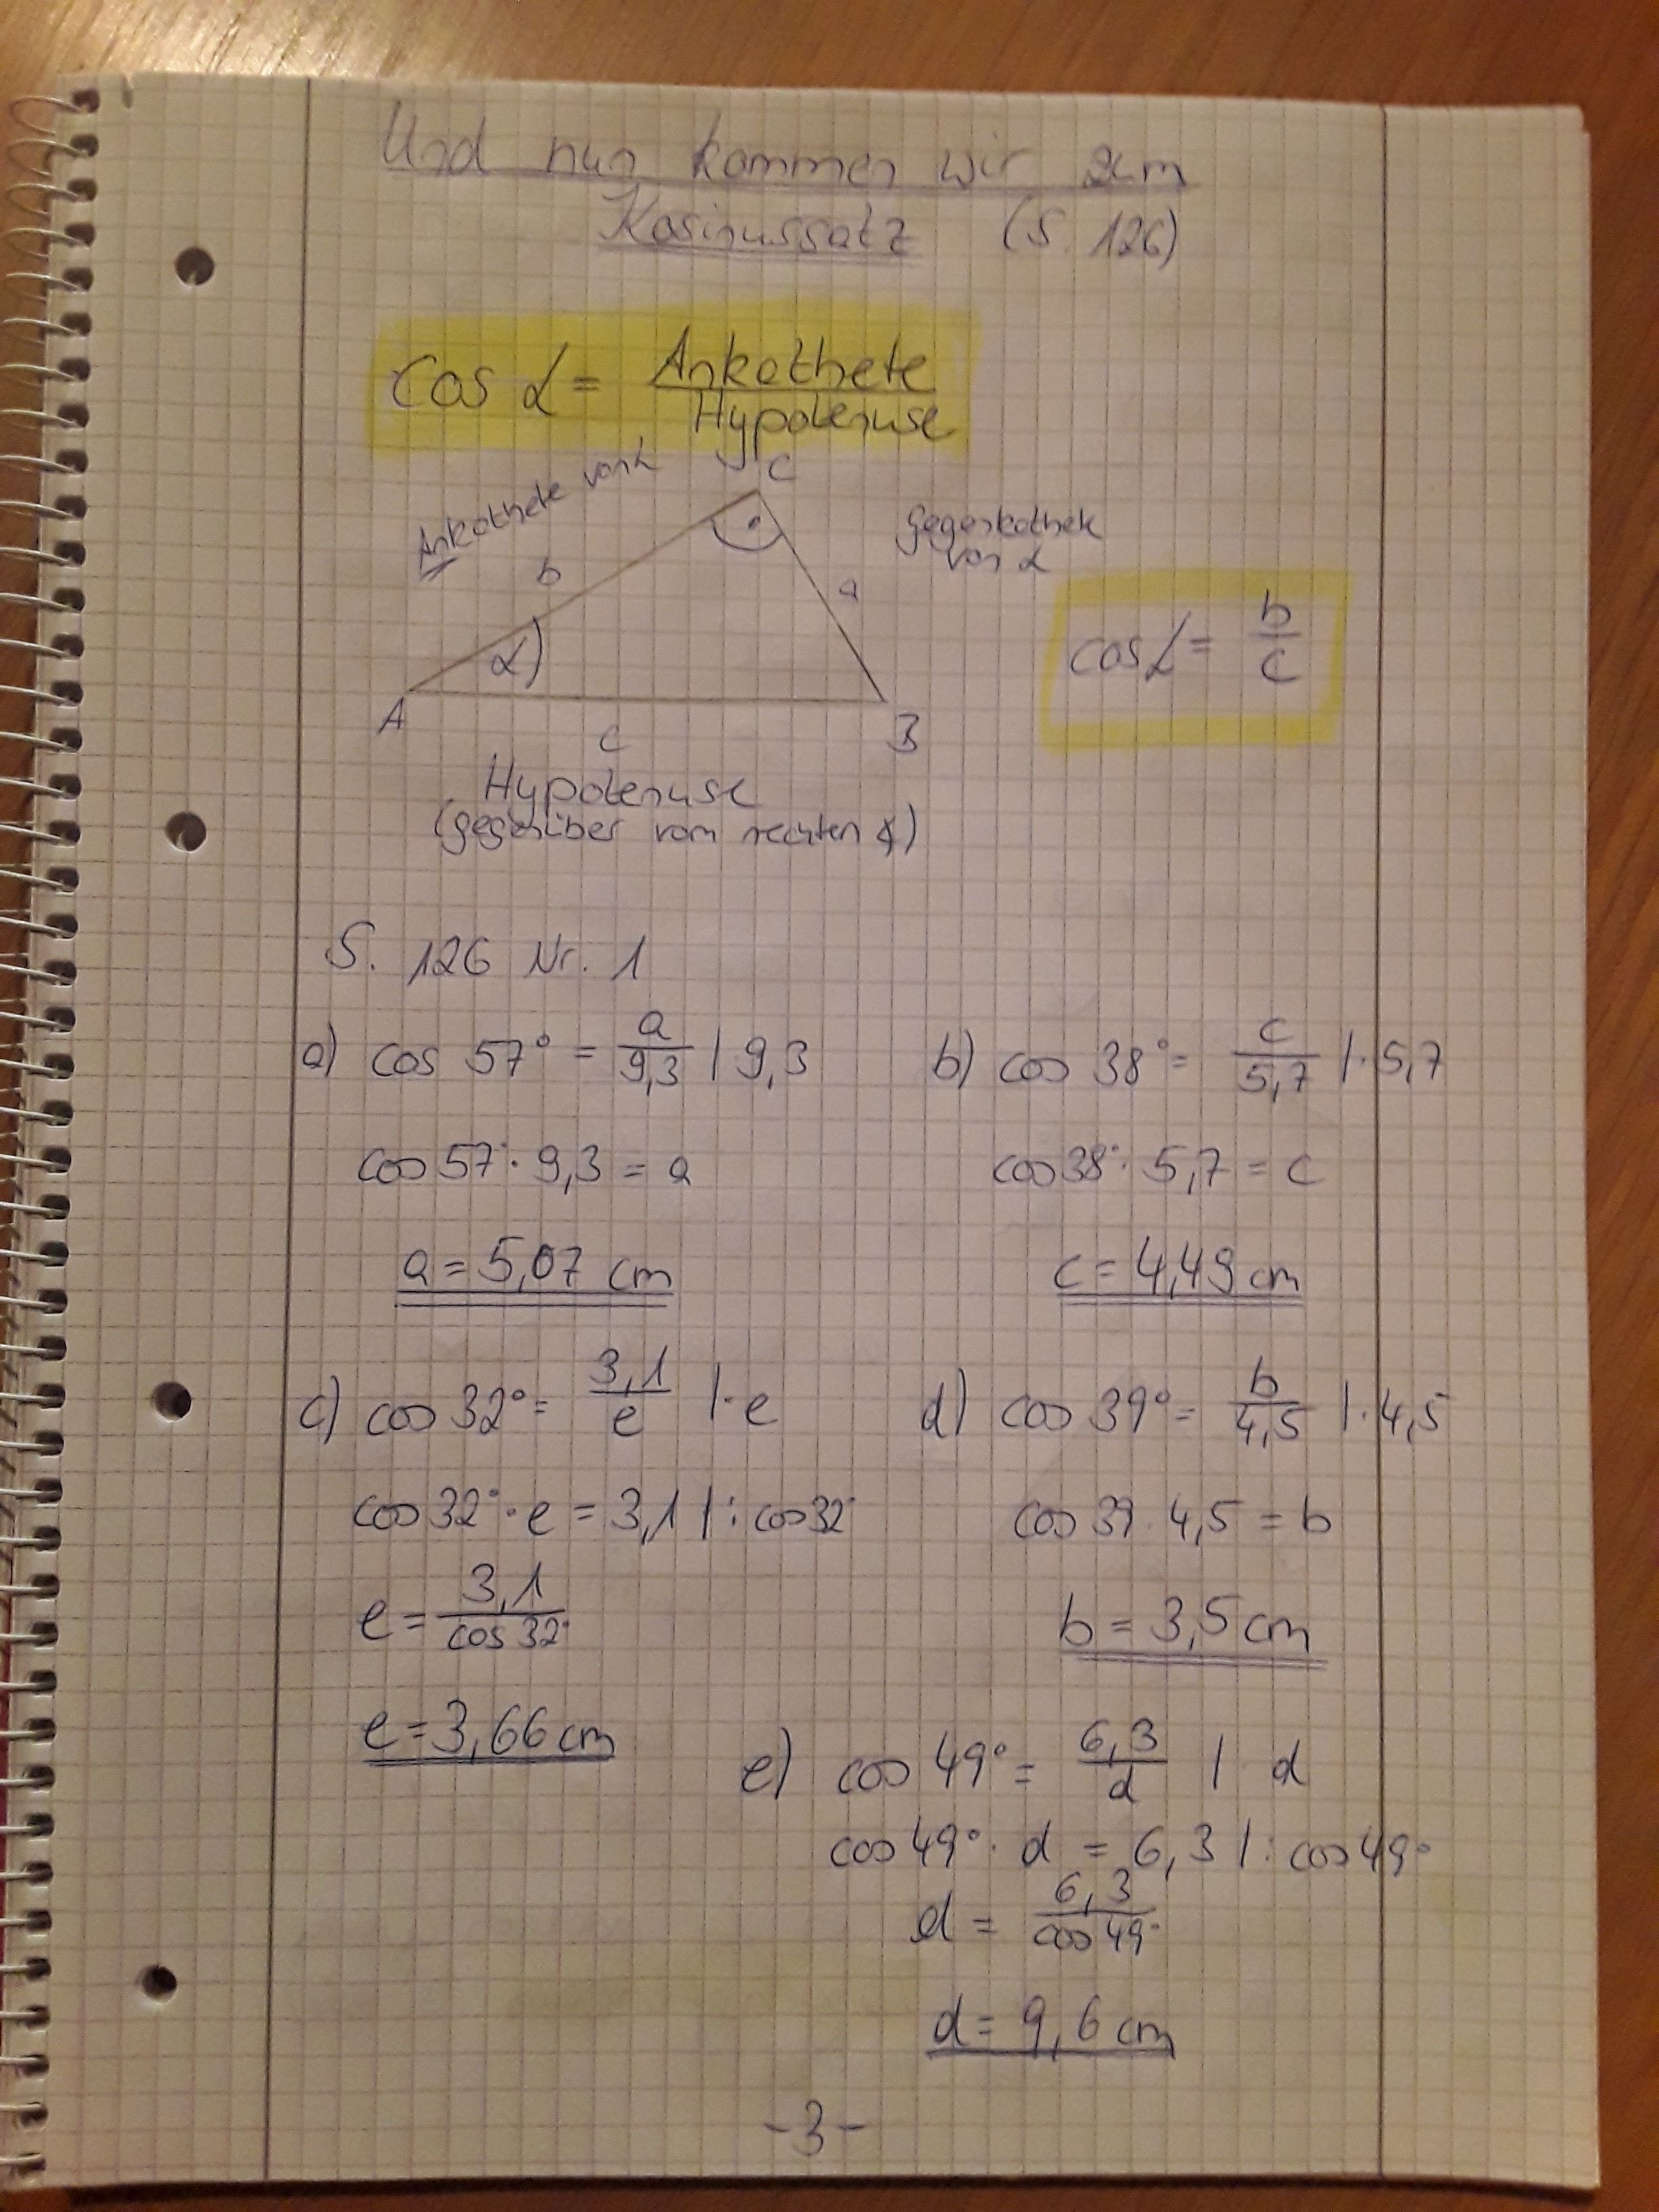 Und nun kommen wir zum
Kosinussatz (S. 126)
cos α = Ankathete / Hypotenuse
Ankathete von α
C
Gegenkathete
von α
b
a
cos α = b / c
α
A
c
B
Hypotenuse
(gegenüber vom rechten ∢)
S. 126 Nr. 1
a) cos 57° = a / 9,3 | 9,3
cos 57° · 9,3 = a
a = 5,07 cm
b) cos 38° = c / 5,7 | · 5,7
cos 38° · 5,7 = c
c = 4,49 cm
c) cos 32° = 3,1 / e | · e
cos 32° · e = 3,1 | : cos 32°
e = 3,1 / cos 32°
e = 3,66 cm
d) cos 39° = b / 4,5 | · 4,5
cos 39 · 4,5 = b
b = 3,5 cm
e) cos 49° = 6,3 / d | d
cos 49° · d = 6,3 | : cos 49°
d = 6,3 / cos 49°
d = 9,6 cm
- 3 -